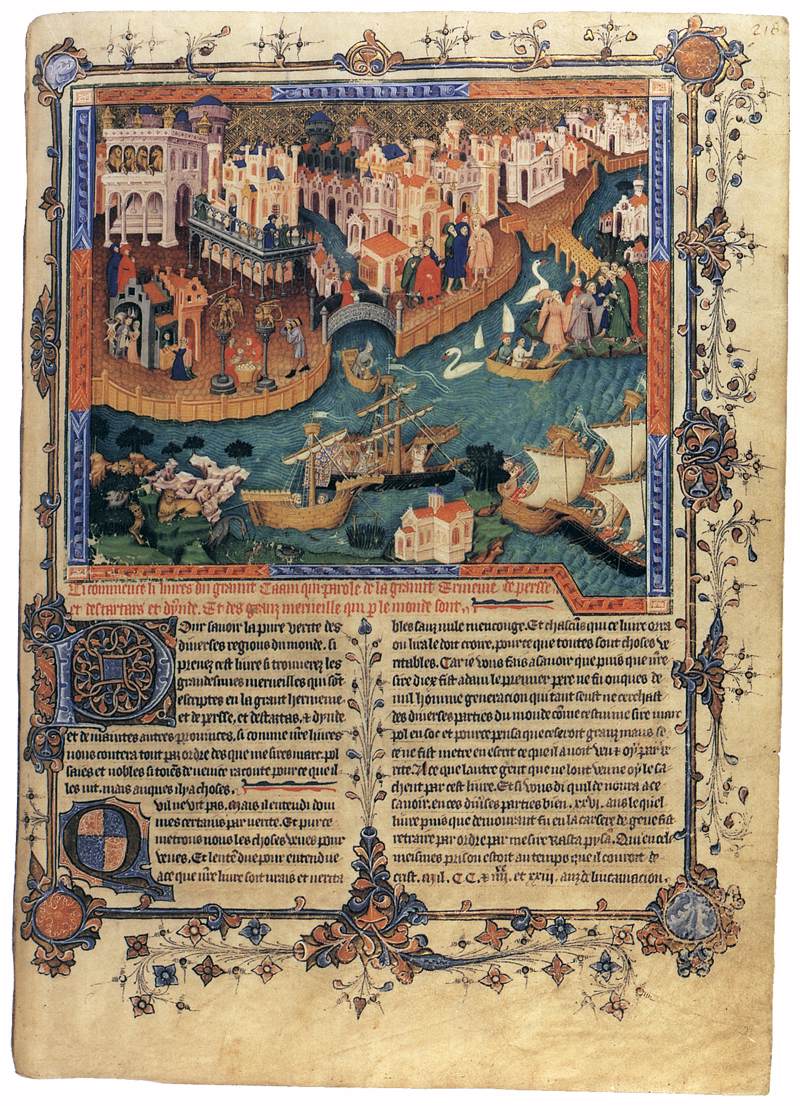 218
Ci commence li liures du graunt Caam qui parole de la graunt Ermenie de persse
et des tartars et dynde. Et des granz merueille qui p le monde sont,
Pour sauoir la pure verite des
diuerses regions du monde. Si
prenez cest liure si trouuerez les
grandesimes merueilles qui sõt
escriptes en la graunt hermenie
et de persse, et des tartars, & dynde
et de maintes autres prouinces, si comme nre liures
nous contera tout par ordre des que me sires marc pol
saies et nobles citoiẽs de uenice raconte pour ce que il
les uit. mais auques il y a choses,
Quil ne uit pas. Mais il entendi dou
mes certains par uerte. Et pur ce
metrons nous les choses veues pour
veues, Et lentẽdue pour entendue
a ce que nre liure soit urais et uerita
bles sanz nule mencouge. Et chascũs qui ce liure orra
ou lira le doit croire, pour ce que toutes sont choses ve
ritables. Car ie vous fais a sauoir que puis que nre
sire diex fist adam le premier pere ne fu onques de
nul homme generacion qui tant seust ne cerchast
des diuerses parties du monde cõme cestui me sire marc
pol en soc et pour ce pensa que ce seroit granz maus se
ce ne fist metre en escrit ce que il auoit ueu & oy par ue
rite. A ce que lautre gent que ne lont veue oy le sa
chent par cest liure. Et si vous di quil demoura a ce
sauoir. en ces dũses parties bien .xxvi. ans le quel
liure puis que demourant fu en la carsere de gene fist
retraire par ordre par mesire rasta pysã. Qui en cele
meismes prison estoit au temps que il couroit de
crist. M.il. CC. x iiii et xviii. anz de lincarnacion.